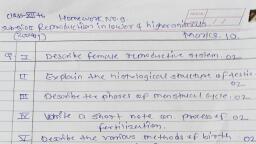 CLASS-XII-th Homework No. 9
Subject Reproduction in lower & higher animals
(zoology) Marks. 10.
Q I Describe female reproductive system. 02
II Explain the histological structure of testis. 02
III Describe the phases of menstrual cycle. 02
IV Write a short note on process of fertilization. 02
V Describe the various methods of birth 02